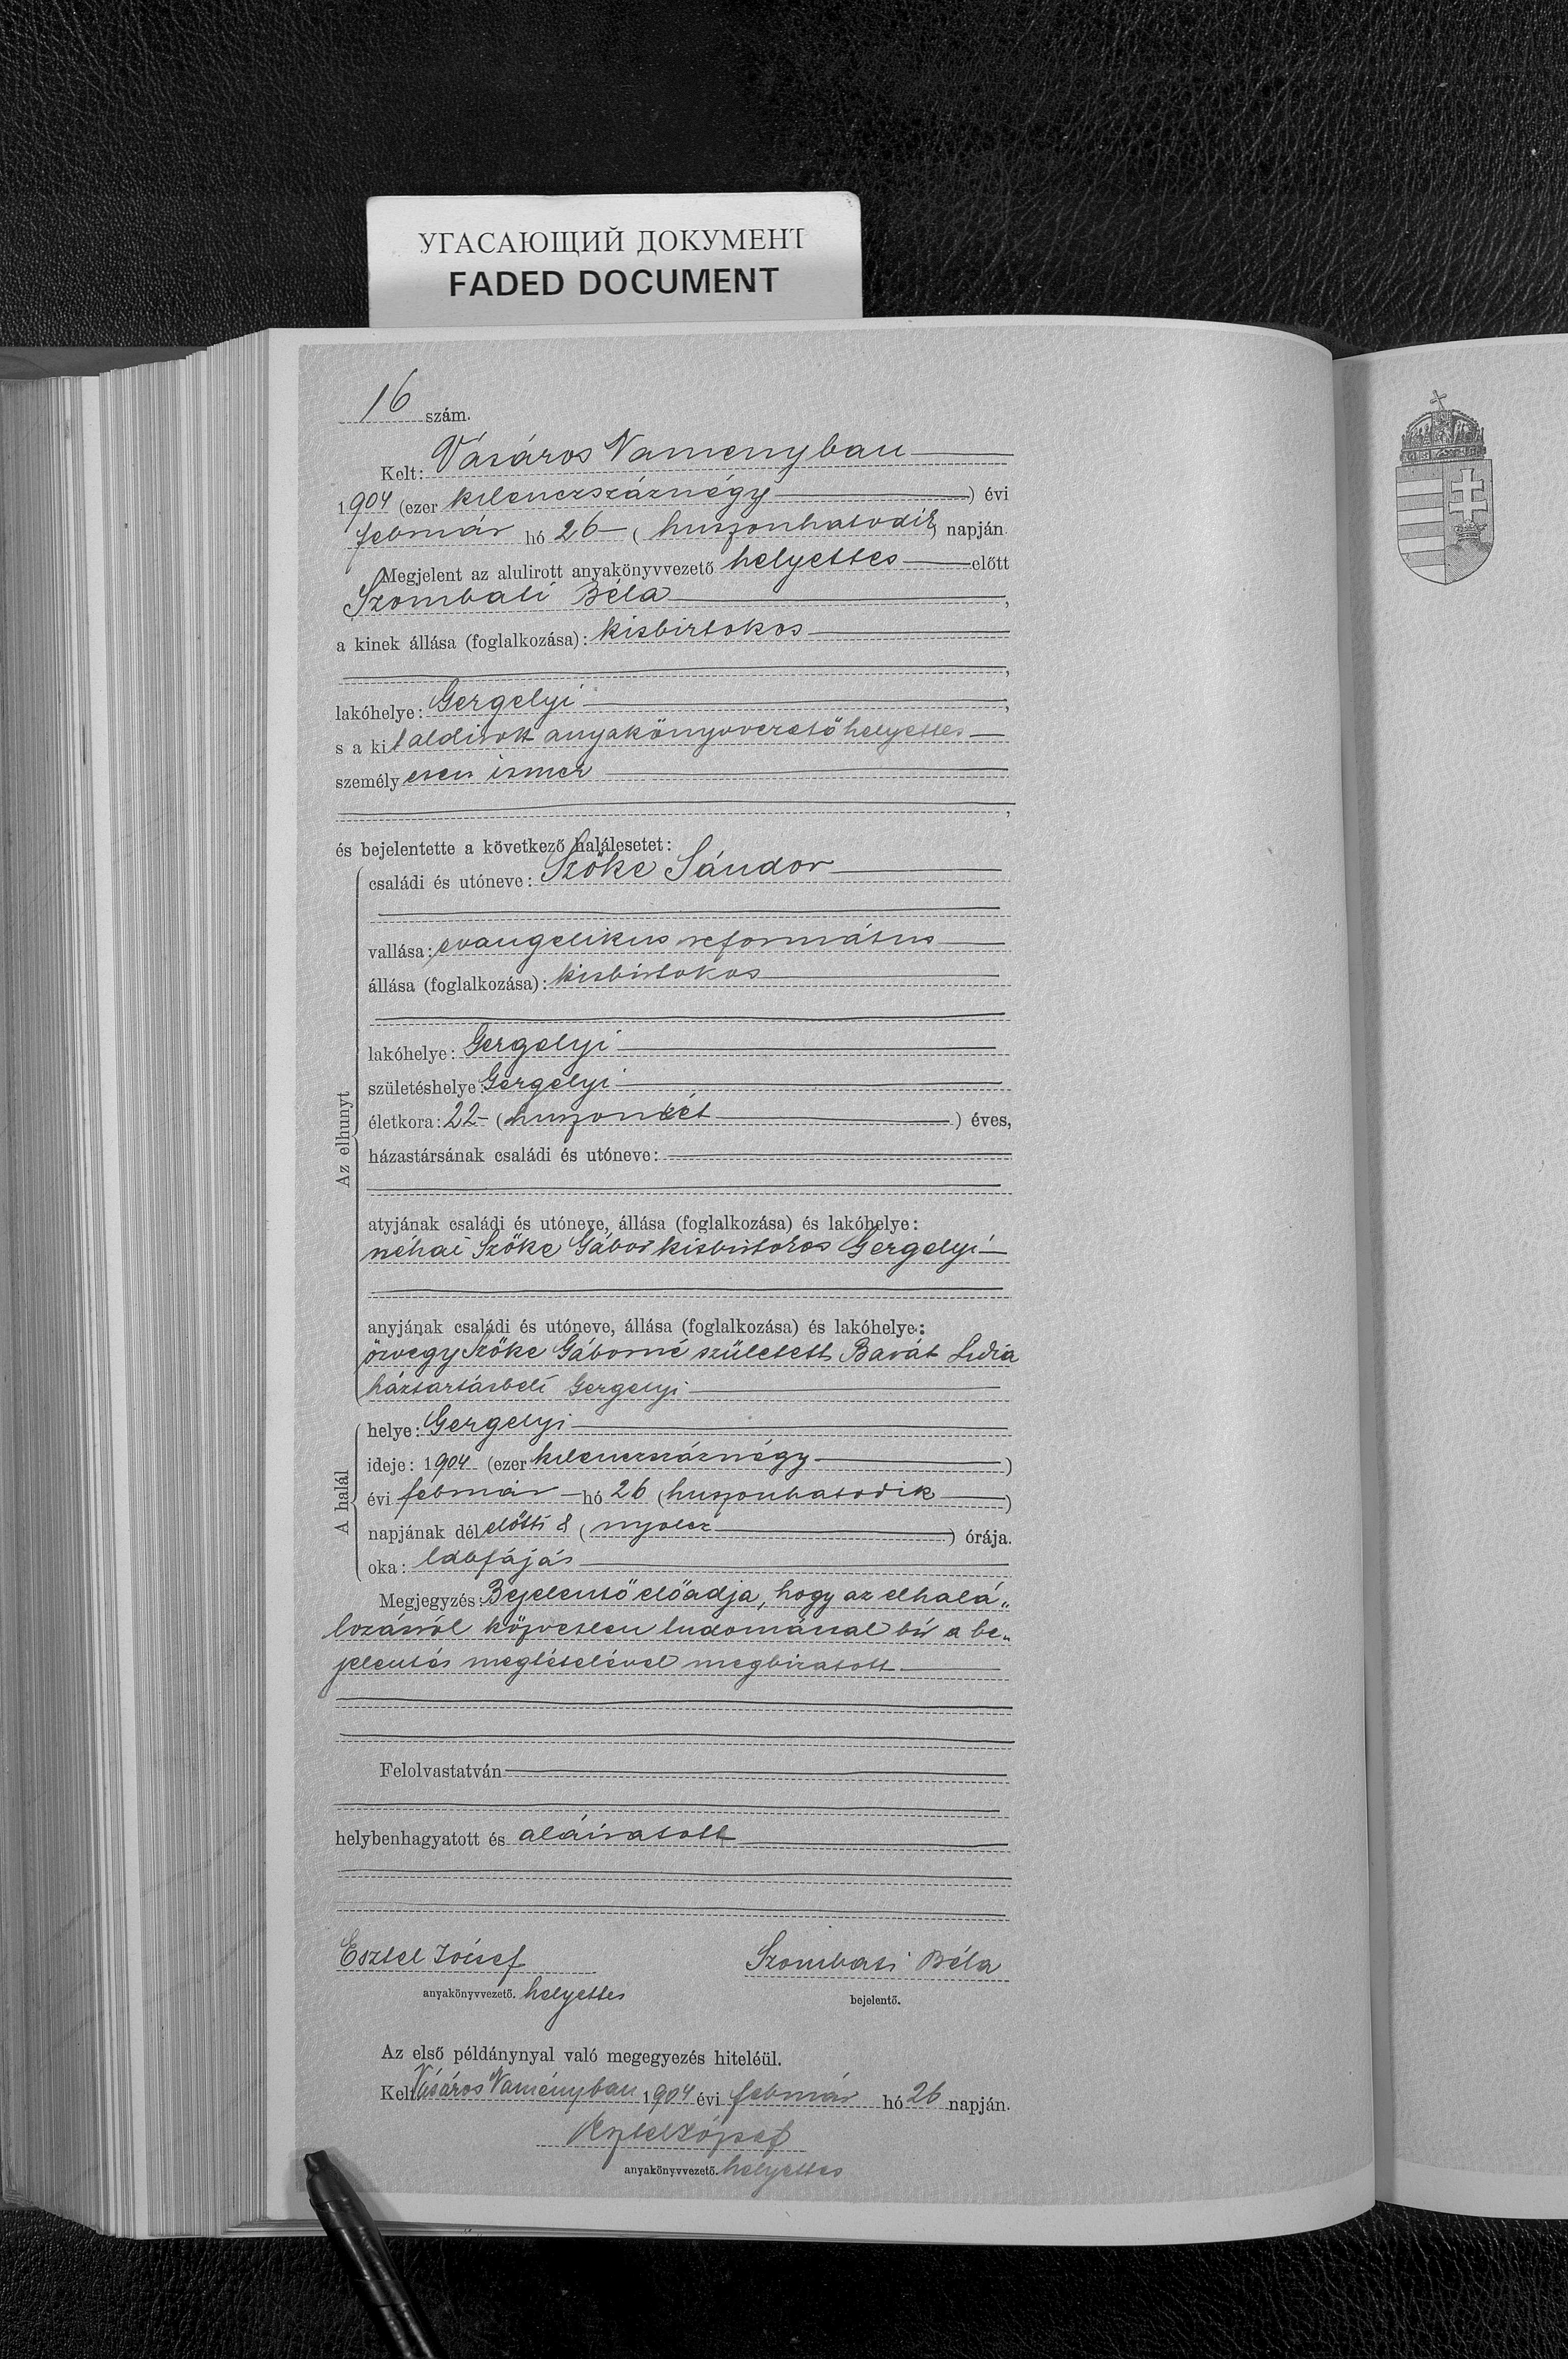 УГАСАЮЩИЙ ДОКУМЕНТ
FADED DOCUMENT
16 szám.
Kelt: Vásáros Naményban
1904 (ezer kilenczszáznégy) évi
február hó 26 – (huszonhatodik) napján.
Megjelent az alulirott anyakönyvvezető helyettes előtt
Szombati Béla,
a kinek állása (foglalkozása): kisbirtokos
,
lakóhelye: Gergelyi,
s a kit aldirott anyakönyvvezető helyettes
személyesen ismer
,
és bejelentette a következő halálesetet:
Az elhunyt
családi és utóneve: Szőke Sándor
vallása: evangelikus református
állása (foglalkozása): kisbirtokos
lakóhelye: Gergelyi
születéshelye: Gergelyi
életkora: 22 – (huszonkét) éves,
házastársának családi és utóneve:
atyjának családi és utóneve, állása (foglalkozása) és lakóhelye:
néhai Szőke Gábor kisbirtokos Gergelyi
anyjának családi és utóneve, állása (foglalkozása) és lakóhelye:
özvegy Szőke Gáborné született Barát Lidia
háztartásbeli Gergelyi
A halál
helye: Gergelyi
ideje: 1904 (ezer kilenczszáznégy)
évi február hó 26 (huszonhatodik)
napjának délelőtti 8 (nyolcz) órája.
oka: lábfájás
Megjegyzés: Bejelentő előadja, hogy az elhalá„
lozásról közvetlen tudomással bír a be„
jelentés megtételével megbizatott
Felolvastatván
helybenhagyatott és aláiratott
Esztel József
Szombati Béla
anyakönyvvezető. helyettes
bejelentő.
Az első példánynyal való megegyezés hiteléül.
Kelt Vásáros Naményban 1904 évi február hó 26 napján.
Esztel József
anyakönyvvezető. helyettes